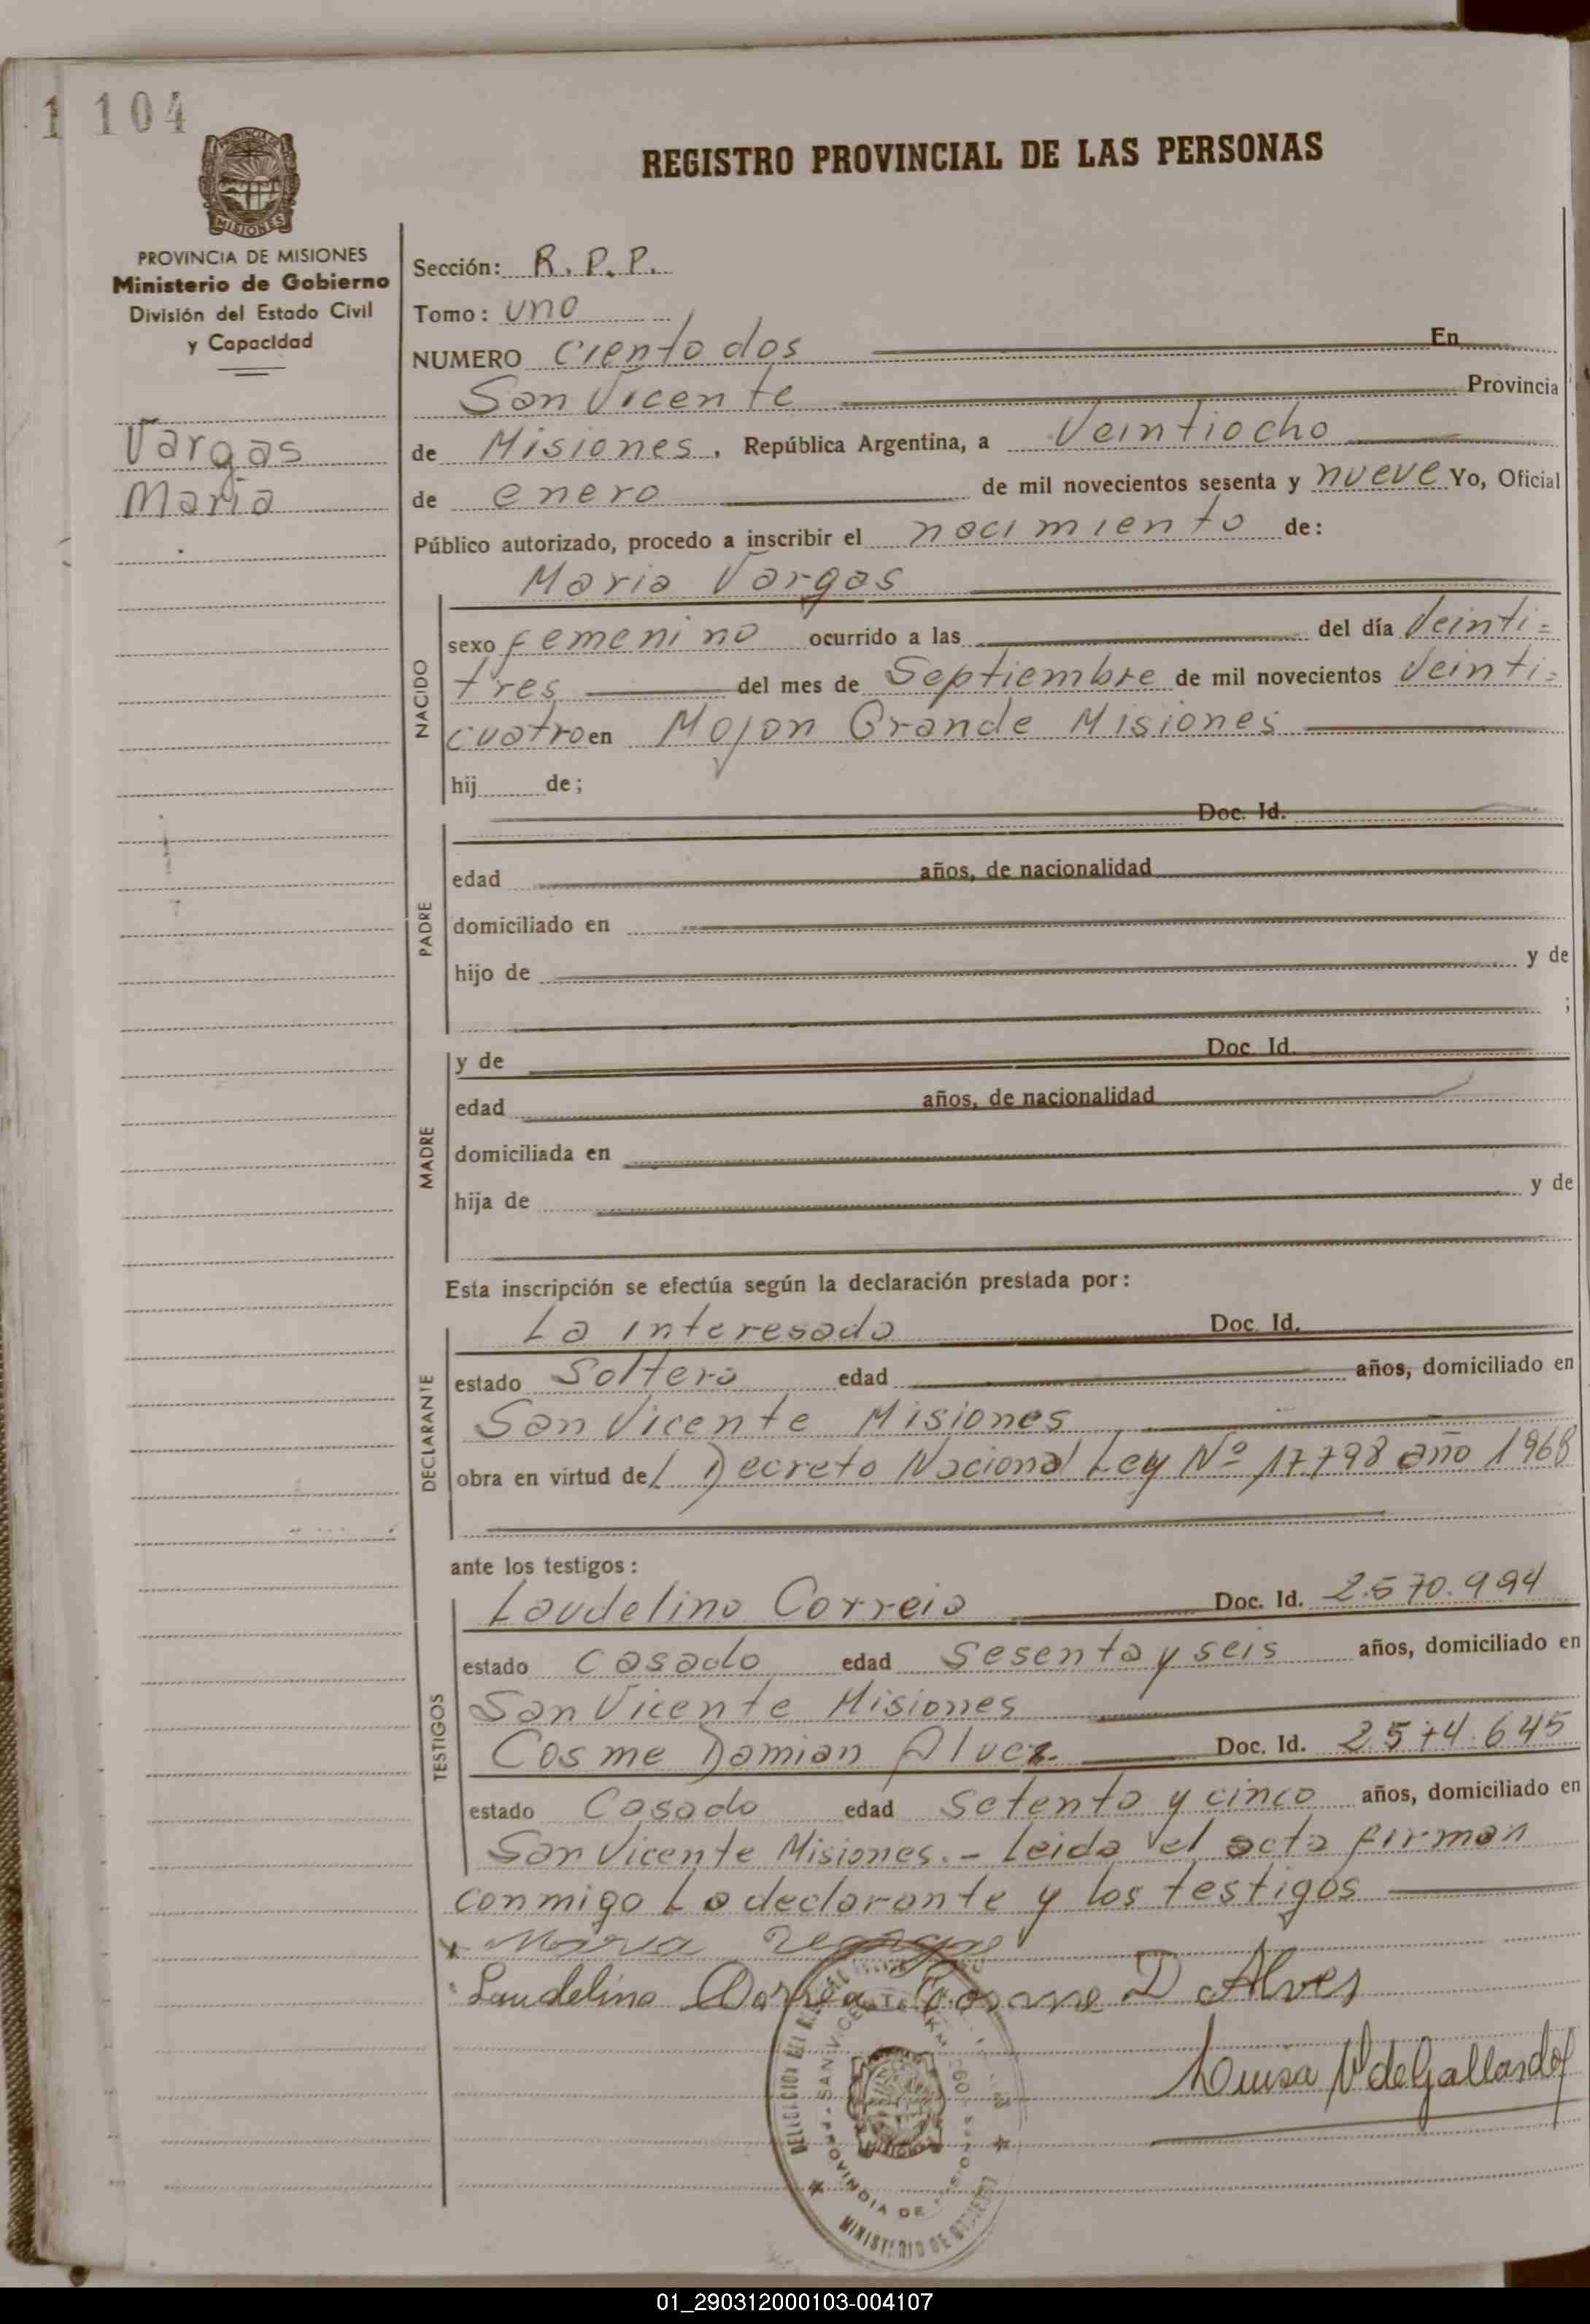 1 104
REGISTRO PROVINCIAL DE LAS PERSONAS
PROVINCIA DE MISIONES
Ministerio de Gobierno
División del Estado Civil
y Capacidad
Vargas
Maria
Sección: R. P. P.
Tomo: uno
NUMERO Ciento dos En
San Vicente Provincia
de Misiones, República Argentina, a Veintiocho
de enero de mil novecientos sesenta y nueve Yo, Oficial
Público autorizado, procedo a inscribir el nacimiento de:
Maria Vargas
NACIDO
sexo femenino ocurrido a las del día Veinti=
tres del mes de Septiembre de mil novecientos Veinti=
cuatro en Mojon Grande Misiones
hij de;
PADRE
Doc. Id.
edad años, de nacionalidad
domiciliado en
hijo de y de
;
MADRE
y de Doc. Id.
edad años, de nacionalidad
domiciliada en
hija de y de
Esta inscripción se efectúa según la declaración prestada por:
DECLARANTE
La interesada Doc. Id.
estado Soltera edad años, domiciliado en
San Vicente Misiones
obra en virtud del Decreto Nacional Ley Nº 17.798 año 1968
ante los testigos:
TESTIGOS
Laudelino Correia Doc. Id. 2.570.994
estado Casado edad Sesenta y seis años, domiciliado en
San Vicente Misiones
Cosme Damian Alvez Doc. Id. 2.574.645
estado Casado edad Setenta y cinco años, domiciliado en
San Vicente Misiones.- Leida el acta firman
conmigo La declarante y los testigos
x Maria Vargas
Laudelino Correa Cosme D Alves
Luisa V de Gallardo
SAN VICENTE KM
PROVINCIA DE MISIONES
MINISTERIO DE GOBIERNO
01_290312000103-004107